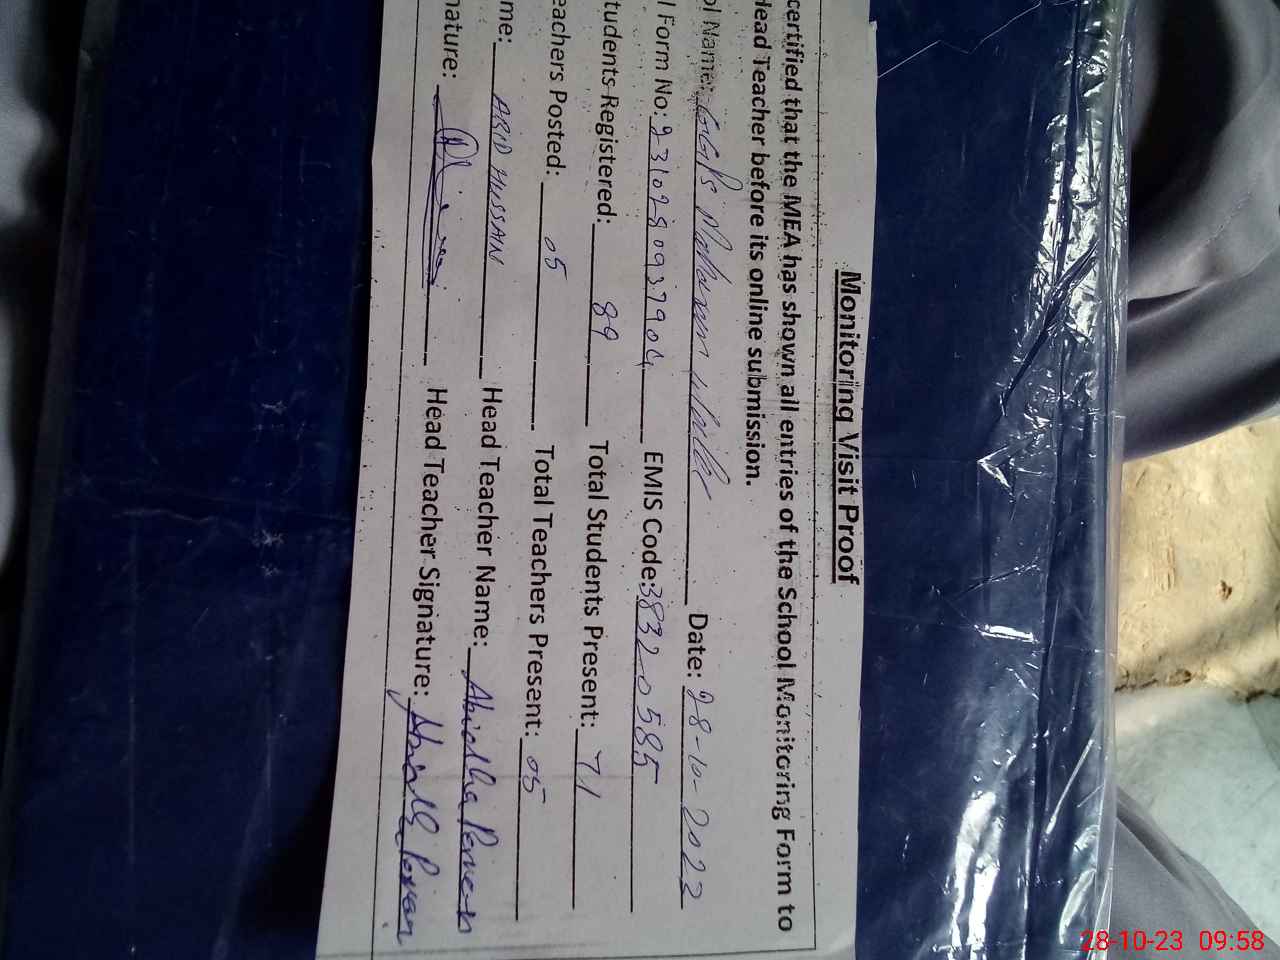 Monitoring Visit Proof
certified that the MEA has shown all entries of the School Monitoring Form to
Head Teacher before its online submission.
ol Name: GGPS Date: 28-10-2022
l Form No: 2310280937904 EMIS Code: 38320585
tudents Registered: 89 Total Students Present: 71
eachers Posted: 05 Total Teachers Present: 05
me: ABID HUSSAIN Head Teacher Name: Abidha Perveen
nature: Head Teacher Signature:
28-10-23 09:58